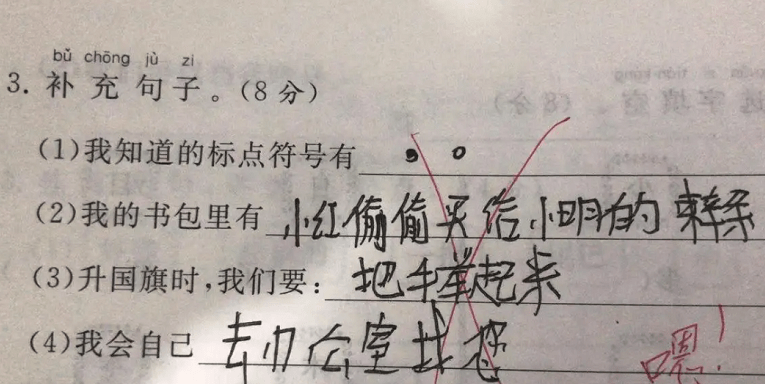 bǔ chōng jù zi
3. 补充句子。(8分)
(1)我知道的标点符号有 ，。
(2)我的书包里有 小红偷偷买给小明的辣条
(3)升国旗时,我们要: 把手举起来
(4)我会自己 去办公室找您
嗯!